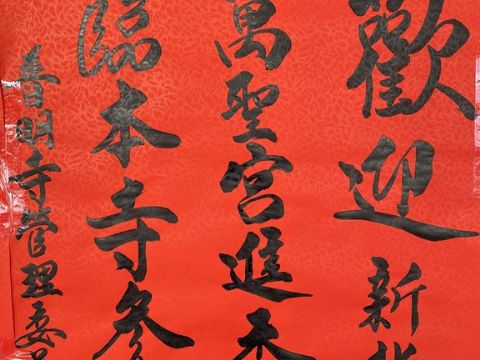 歡迎新北
萬聖宮進香
臨本寺參
普明寺管理委